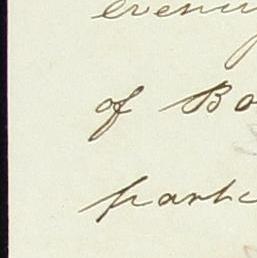 evenin
of Bo
partic